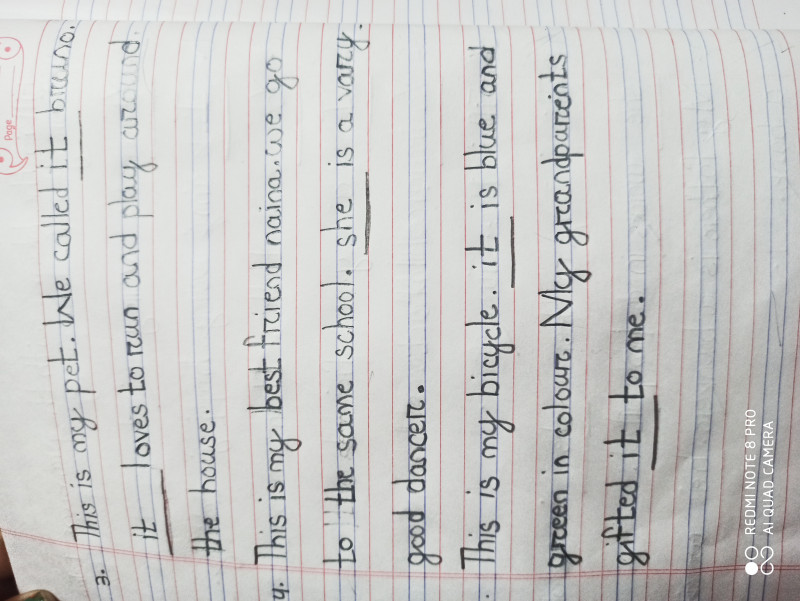 Page
3. This is my pet. We called it bruno.
it loves to run and play around.
the house.
4. This is my best friend naina. we go
to the same school. she is a vary.
good dancer.
. This is my bicycle. it is blue and
green in colour. My grandparents
gifted it to me.
REDMI NOTE 8 PRO
AI QUAD CAMERA